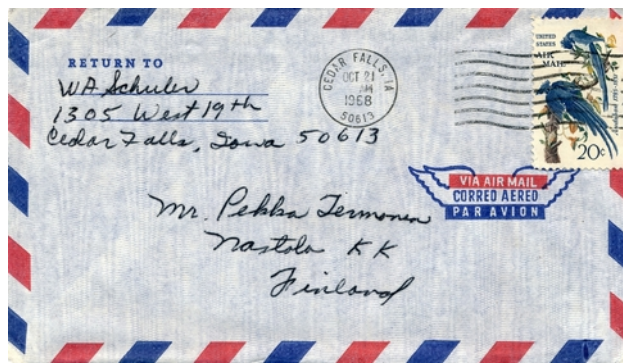 RETURN TO
WA Schuler
1305 West 19th
Cedar Falls, Iowa 50613
CEDAR FALLS, IA
OCT 21
AM
1968
50613
UNITED
STATES
AIR
MAIL
20c
VIA AIR MAIL
CORREO AEREO
PAR AVION
Mr. Pekka Termonen
Nastola KK
Finland